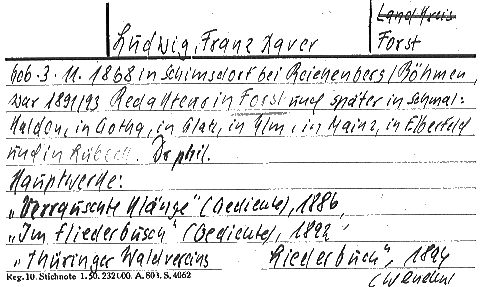 Landkreis
Ludwig, Franz Xaver Forst
geb. 3. 11. 1868 in Schimsdorf bei Reichenberg/Böhmen,
war 1891/93 Redakteur in Forst und später in Schmal-
kalden, in Gotha, in Glatz, in Ulm, in Mainz, in Elberfeld
und in Lübeck. Dr phil.
Hauptwerke:
„Verrauschte Klänge" (Gedichte), 1886,
„Im Fliederbusch" (Gedichte), 1892
„Thüringer Waldvereins Liederbuch", 1894
Reg. 10. Stichnote 1. 50. 232000. A. 803. S. 4062